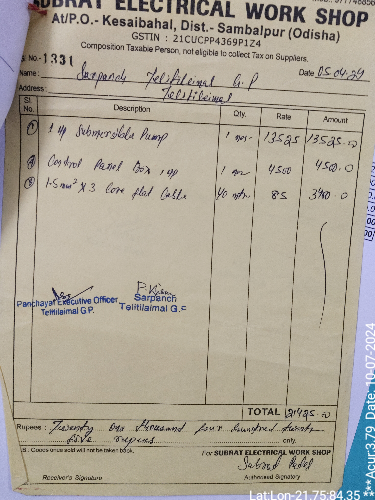 SUBRAT ELECTRICAL WORK SHOP
At/P.O.- Kesaibahal, Dist.- Sambalpur (Odisha)
GSTIN : 21CUCPP4369P1Z4
Composition Taxable Person, not eligible to collect Tax on Suppliers.
No.-1331 Date 05.04.24
Name : Sarpanch Telitileimal G.P
Address : Telitileimal
Sl. No. Description Qty. Rate Amount
1 1 hp Submersible Pump 1 nos 13525 13525.00
2 Control Panel Box 1 hp 1 nos 4500 4500.0
3 1.5mm² X 3 Core flat Cable 40 mtr 85 3400.0
Panchayat Executive Officer
Telitilaimal G.P.
Sarpanch
Telitilaimal G.P
TOTAL 21425.00
Rupees : Twenty one thousand four hundred twenty
five rupees only.
: Coods will not be taken back. For SUBRAT ELECTRICAL WORK SHOP
Receiver's Signature Authorised Signatory
Lat:Lon-21.75:84.35
***Acur:3.79 Date:10-07-2024